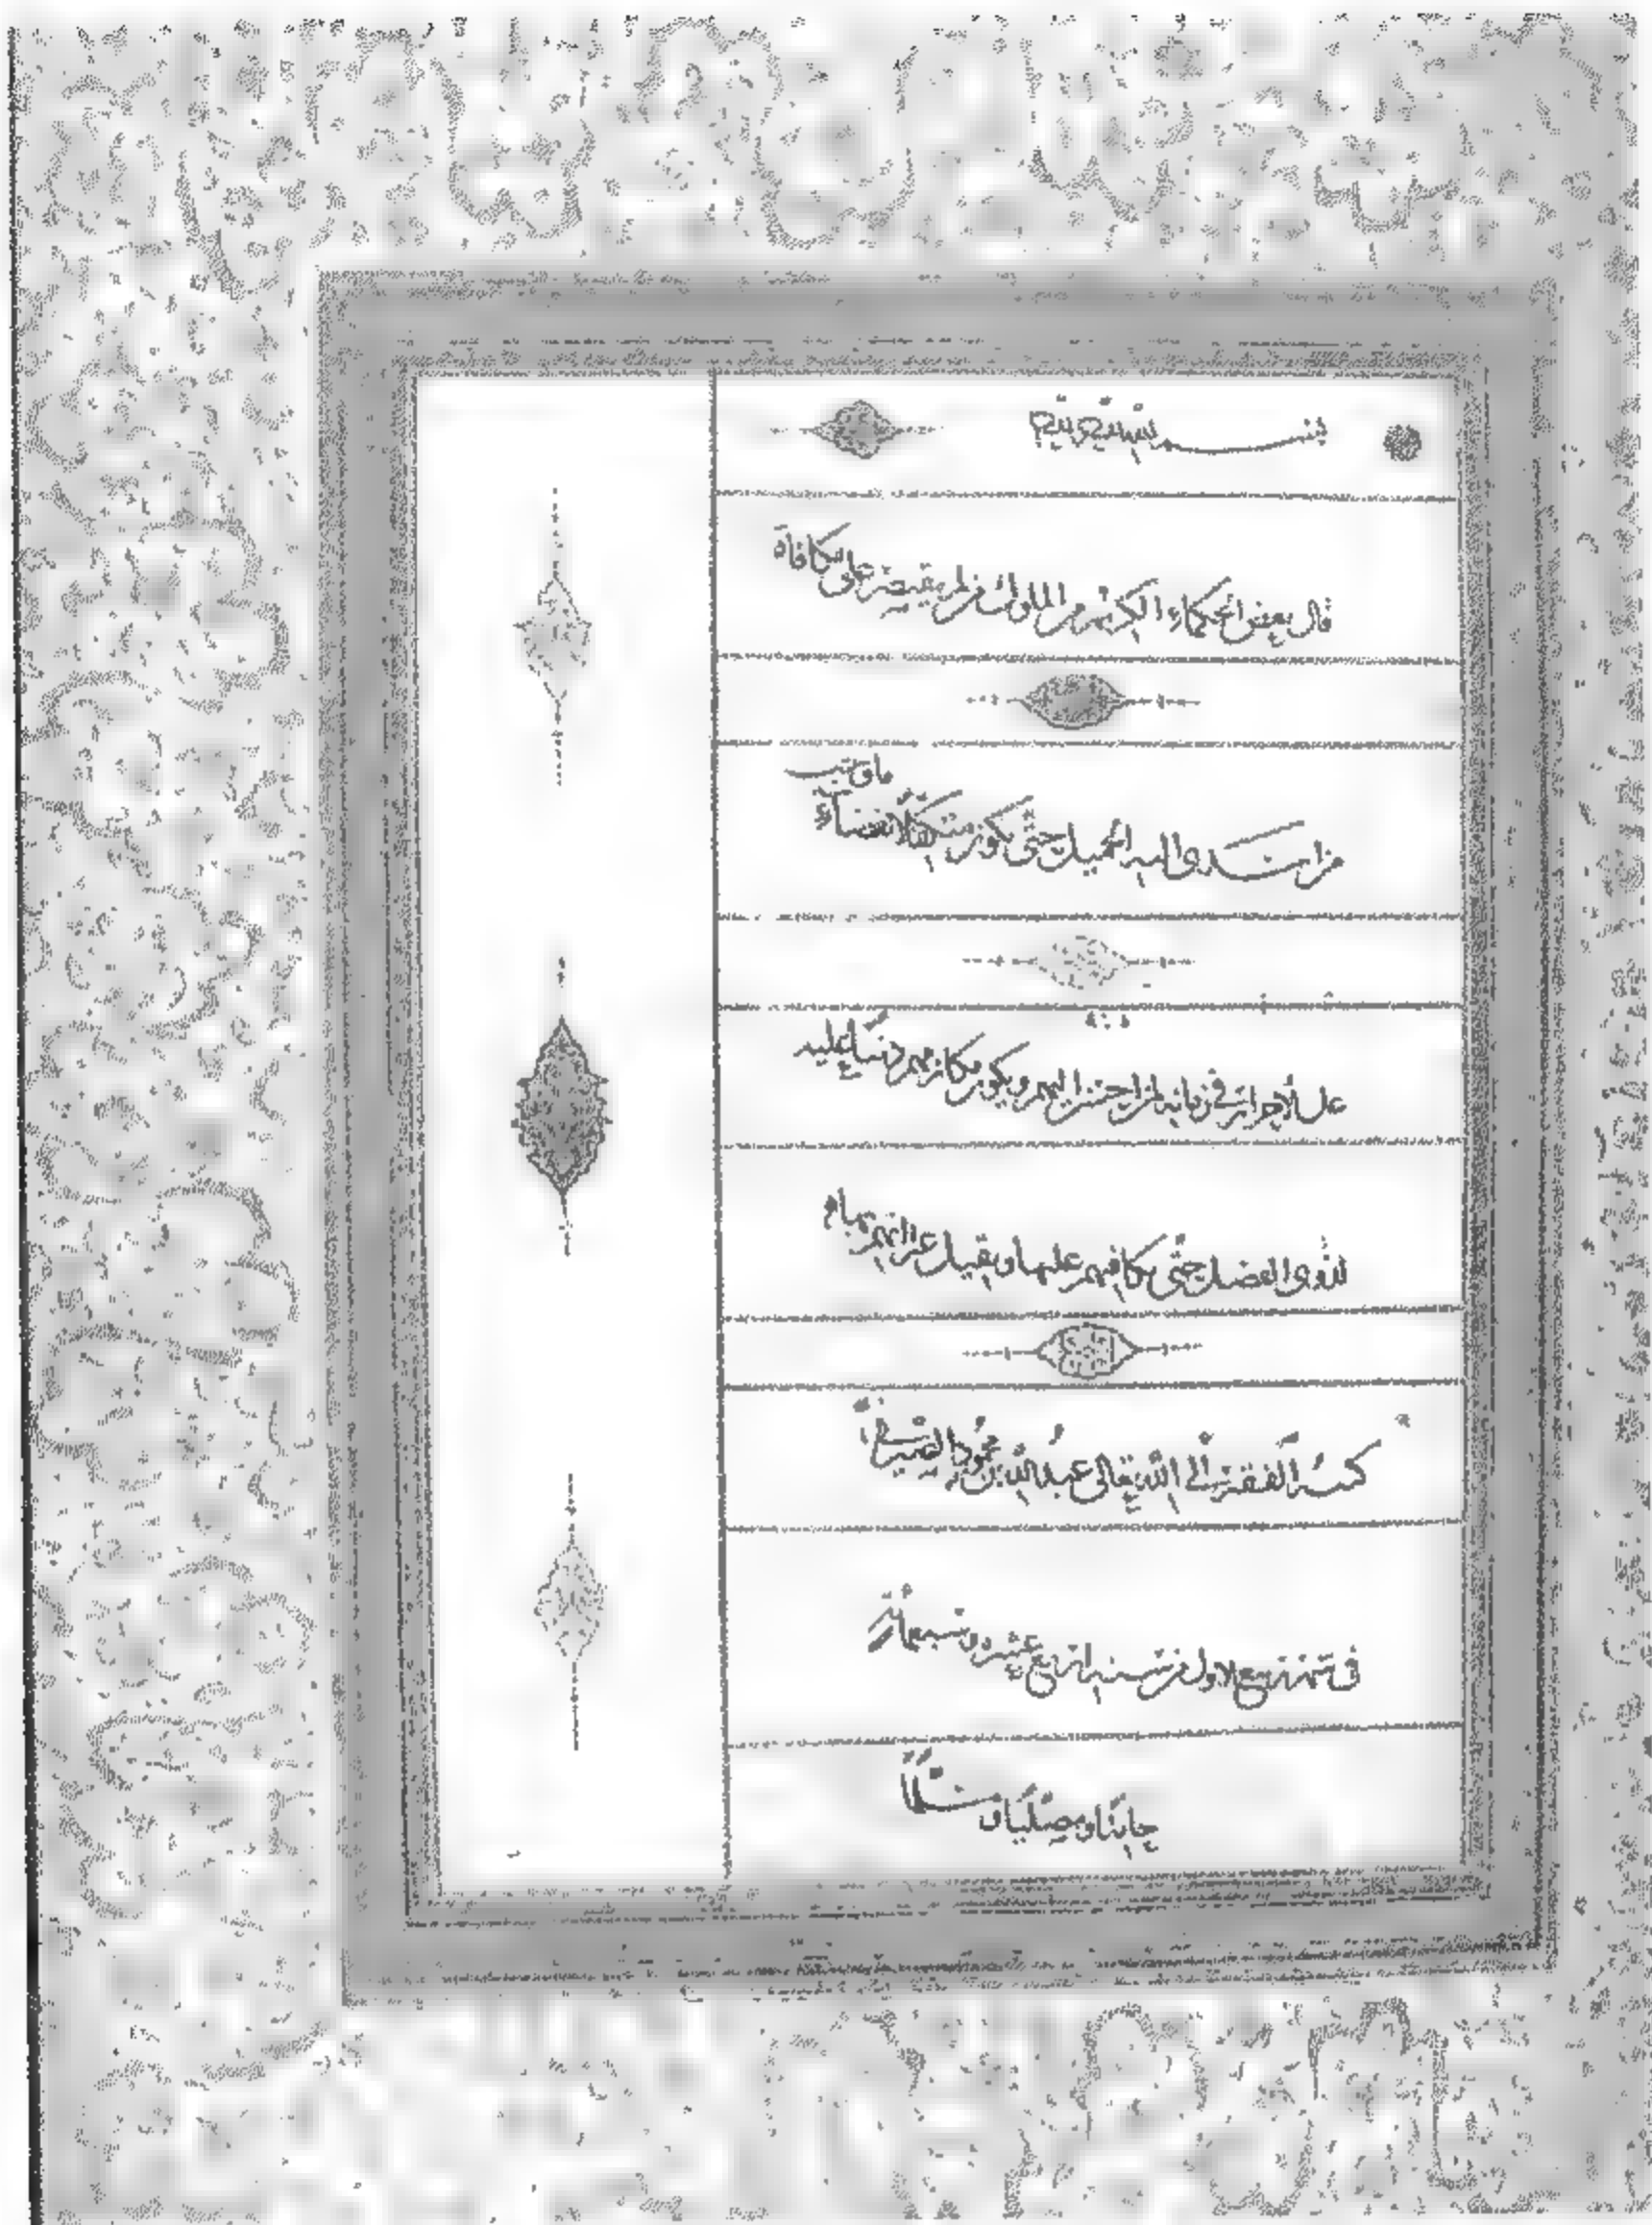 قال بعض الحكماء الكريم من الملوك من لم يقتصر على مكافاة
من اسدى اليه الجميل حتى يكون متكفلا بقضاء ما وجب
على الاحرار في زمانه لمن احسن اليهم ويكون مكارمهم دينا عليه
لذوى الفضل حتى يكافيهم عليها
كتبه الفقير الى الله تعالى عبد الله بن محمود الصيرفي
في شهر ربيع الاول من سنة اربع عشره وسبعمائة
حامدا ومصليا ومسلما